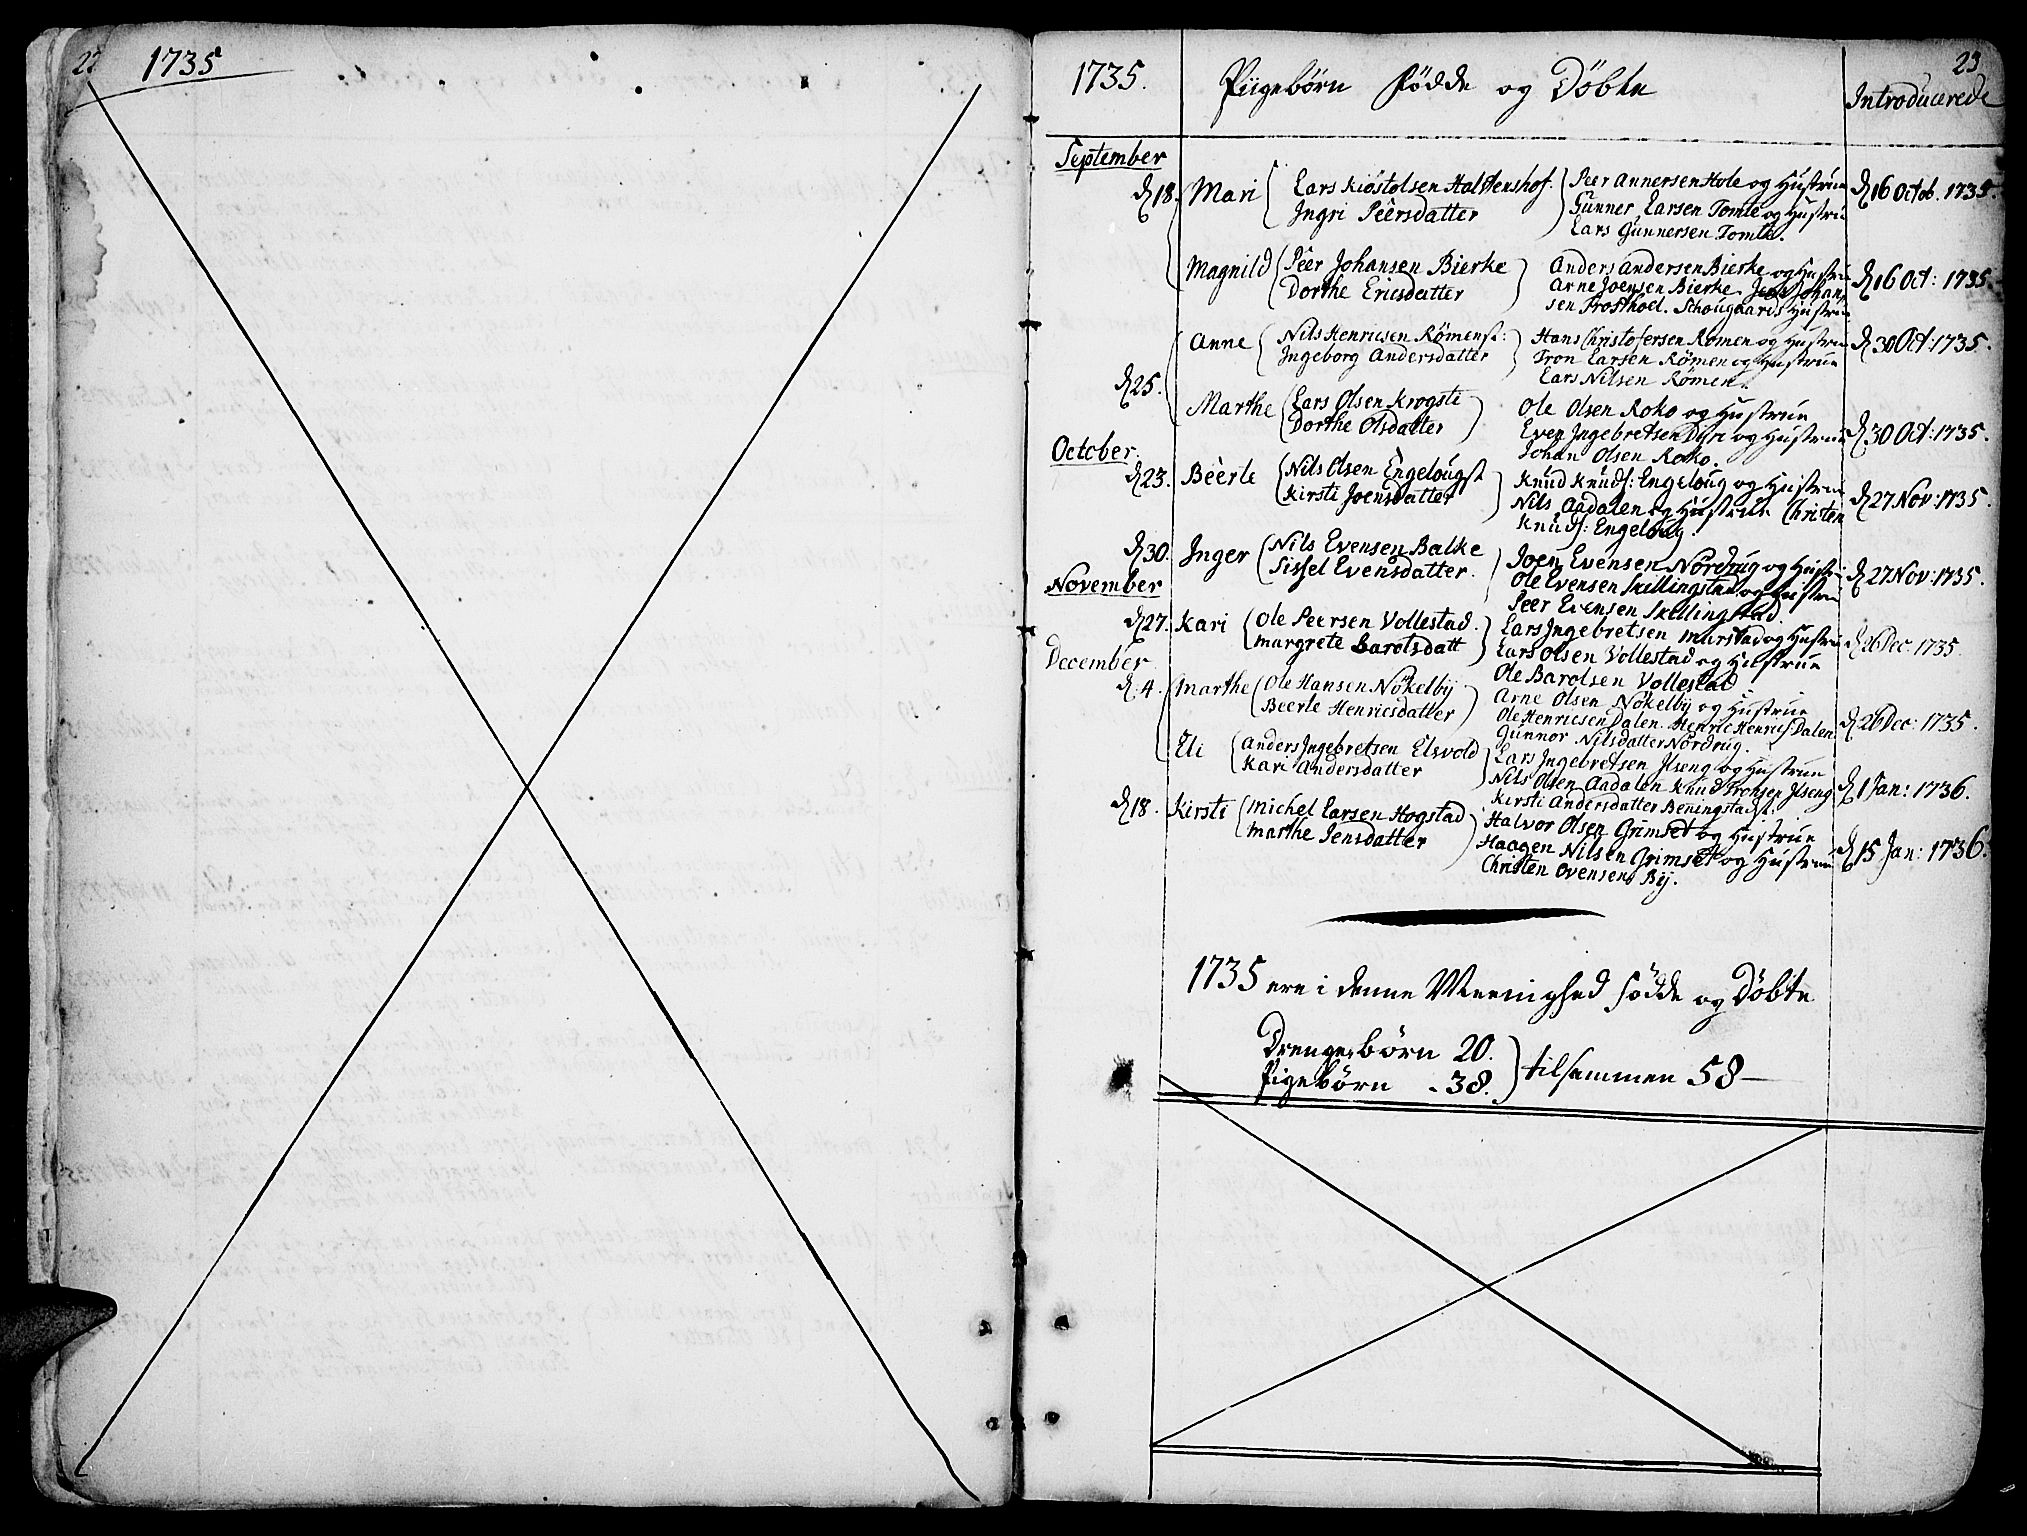 22 1735
23
1735. Piigebörn Födde og Döbte Introducerede
September
d 18. Mari Lars Kiöstolsen Halstenshof. Peer Annersen Hole og Hustrue d 16 Octob. 1735.
Ingri Peersdatter Gunner Larsen Tomte og Hustrue
Lars Gunnersen Tomte.
Magnild Peer Johansen Bierke Anders Andersen Bierke og Hustrue d 16 Oct: 1735.
Dorthe Ericsdatter Arne Joensen Bierke Johan
sen Frosthoel. Schougaards Hustrue
Anne Nils Henricsen Römens: Hans Christofersen Römen og Hustrue d 30 Oct: 1735.
Ingeborg Andersdatter Tron Larsen Römen og Hustrue
d 25. Lars Nilsen Römen.
Marthe Lars Olsen Krogsti Ole Olsen Roko og Hustrue
Dorthe Olsdatter Even Ingebretsen Dyre og Hustrue d 30 Oct: 1735.
October. Johan Olsen Roko.
d 23. Beerle Nils Olsen Engelougst Knud Knuds: Engeloug og Hustrue
Kirsti Joensdatter Nils Aadalen og Hustrue Christen d 27 Nov: 1735.
Knuds: Engeloug.
d 30. Inger Nils Evensen Balke Joen Evensen Nordrug og Hustrue d 27 Nov: 1735.
Sissel Evensdatter. Ole Evensen Skillingstad og Hustrue
November Peer Evensen Skillingstad.
d 27. Kari Ole Peersen Vollestad. Lars Ingebretsen Murstad og Hustrue d 26 Dec: 1735.
Margrete Barolsdatt Lars Olsen Vollestad og Hustrue
December Ole Barolsen Vollestad
d. 4. Marthe Ole Hansen Nökelby Arne Olsen Nökelby og Hustrue
Beerle Henricsdatter Ole Henricsen Dalen. Henric Henrics Dalen. d 26 Dec: 1735.
Gunnor Nilsdatter Nordrug.
Eli Anders Ingebretsen Elsvold Lars Ingebretsen Ilseng og Hustrue
Kari Andersdatter Nils Olsen Aadalen Knud Tronsen Ilseng d 1 Jan: 1736.
Kirsti Andersdatter Beningstadst.
d 18. Kirsti Michel Larsen Hogstad Halvor Olsen Grimset og Hustrue
Marthe Jensdatter Haagen Nilsen Grimset og Hustrue d 15 Jan: 1736.
Christen Ovensen Bij.
1735 ere i denne Meenighed födde og Döbte
Drengebörn 20.
Pigebörn - 38. tilsammen 58 —